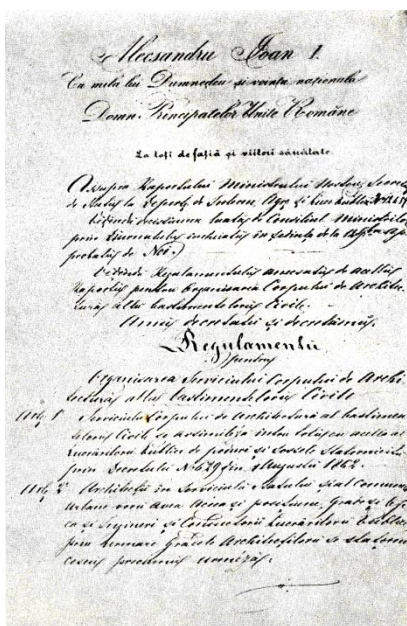 Alecsandru Ioan I.
Cu mila lui Dumnedeu și voința națională
Domn Principatelor Unite Române
La toți de față și viitori sănătate
Asupra Raportului Ministrului Nostru Secretar
de Stat la Depart. de Lucrări
Vedend decisiunea luată de Consiliul Miniștrilor
prin în ședința de la
probatŭ de Noi.
Vedend Regulamentulŭ anexatŭ de acelŭ
Raportŭ pentru Organisarea Corpului de Archite
turăŭ alŭ bastimentelorŭ Civile.
Amŭ decretatŭ și decretămŭ.
Regulamentŭ
pentru
Organisarea Serviciului Corpului de Archi
tecturăŭ alŭ bastimentelorŭ Civile
Artŭ 1 Serviciulŭ Corpului de Architectură al bastimen
telorŭ Civile se assimilesă întru totŭ cu acelŭ al
Lucrărilorŭ publice de poduri și șosele
prin Decretulŭ No 629 din Augustŭ 1862.
Artŭ 2 Architecții în Serviciulŭ Statului și al comunelor
Urbane vorŭ avea și posițiune, Grade și
ca și Ingineri și Conductorii Lucrărilorŭ Publice
prin urmare Gradele Architecțilorŭ se
cescŭ precumŭ urmeză.